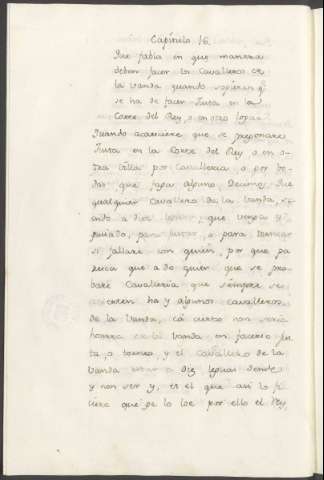 Capitulo 16.
Que fabla en que manera
deben facer los Cavalleros de
la vanda quando sopieren q̃
se ha de facer Justa en la
Corte del Rey, o en otro logar
Quando acaeciere que se pregonare
Justa en la Corte del Rey o en o-
tra villa por Cavalleria o por bo-
das que faga alguno, Decimos Que
qualquier Cavallero de la Vanda, se-
endo a diez leguas que venga y
guisado, para justar, o para tornear
si fallare con quien, por que pa
rezca que a do quier que se pro-
bare Cavalleria que siempre se
acierten hay algunos cavalleros
de la vanda, cá cierto non seria
honrra de la vanda en facerse jus
ta, o torneo, y el Cavallero de la
vanda estar a diez leguas dende
y non ser y, et el que asi lo fi
ciere que ge lo loe por ello el Rey,